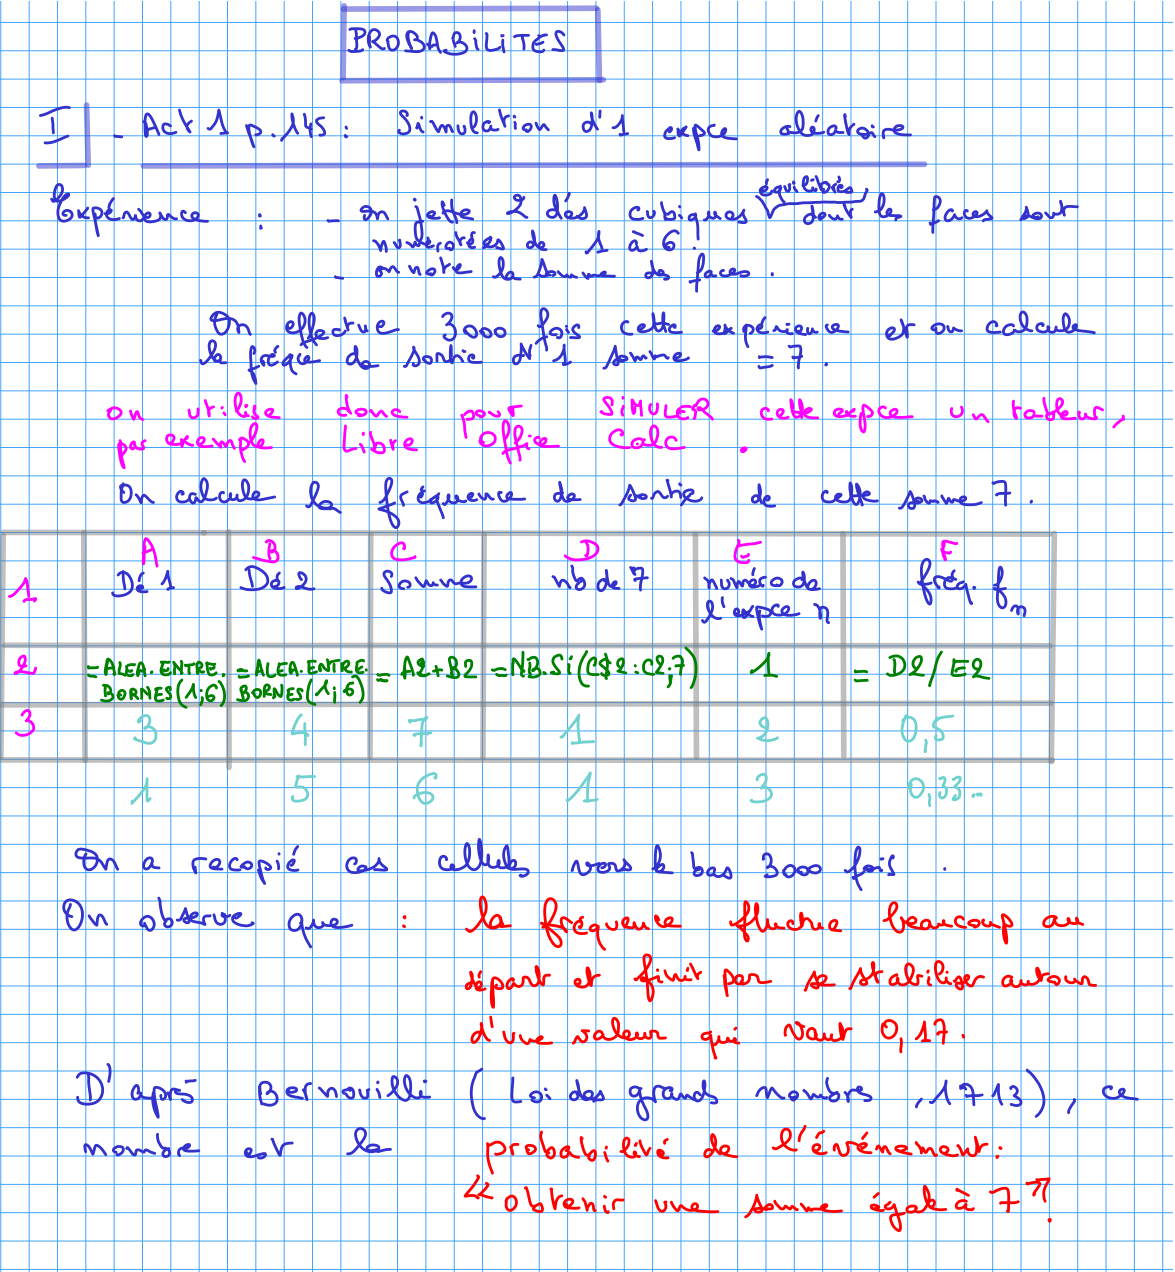 PROBABILITES
I - Act 1 p.145 : Simulation d'1 expce aléatoire
équilibrés,
Expérience : - on jette 2 dés cubiques dont les faces sont
numérotées de 1 à 6.
- on note la somme des faces.
On effectue 3000 fois cette expérience et on calcule
la fréqce de sortie d'1 somme = 7.
on utilise donc pour SIMULER cette expce un tableur,
par exemple Libre Office Calc.
On calcule la fréquence de sortie de cette somme 7.
A B C D E F
1 Dé 1 Dé 2 Somme nb de 7 numéro de l'expce n fréq. fn
2 =ALEA.ENTRE.BORNES(1;6) =ALEA.ENTRE.BORNES(1;6) =A2+B2 =NB.Si(C$2:C2;7) 1 =D2/E2
3 3 4 7 1 2 0,5
1 5 6 1 3 0,33..
On a recopié ces cellules vers le bas 3000 fois.
On observe que : la fréquence fluctue beaucoup au
départ et finit par se stabiliser autour
d'une valeur qui vaut 0,17.
D'après Bernouilli (Loi des grands nombres, 1713), ce
nombre est la probabilité de l'événement:
"Obtenir une somme égale à 7".